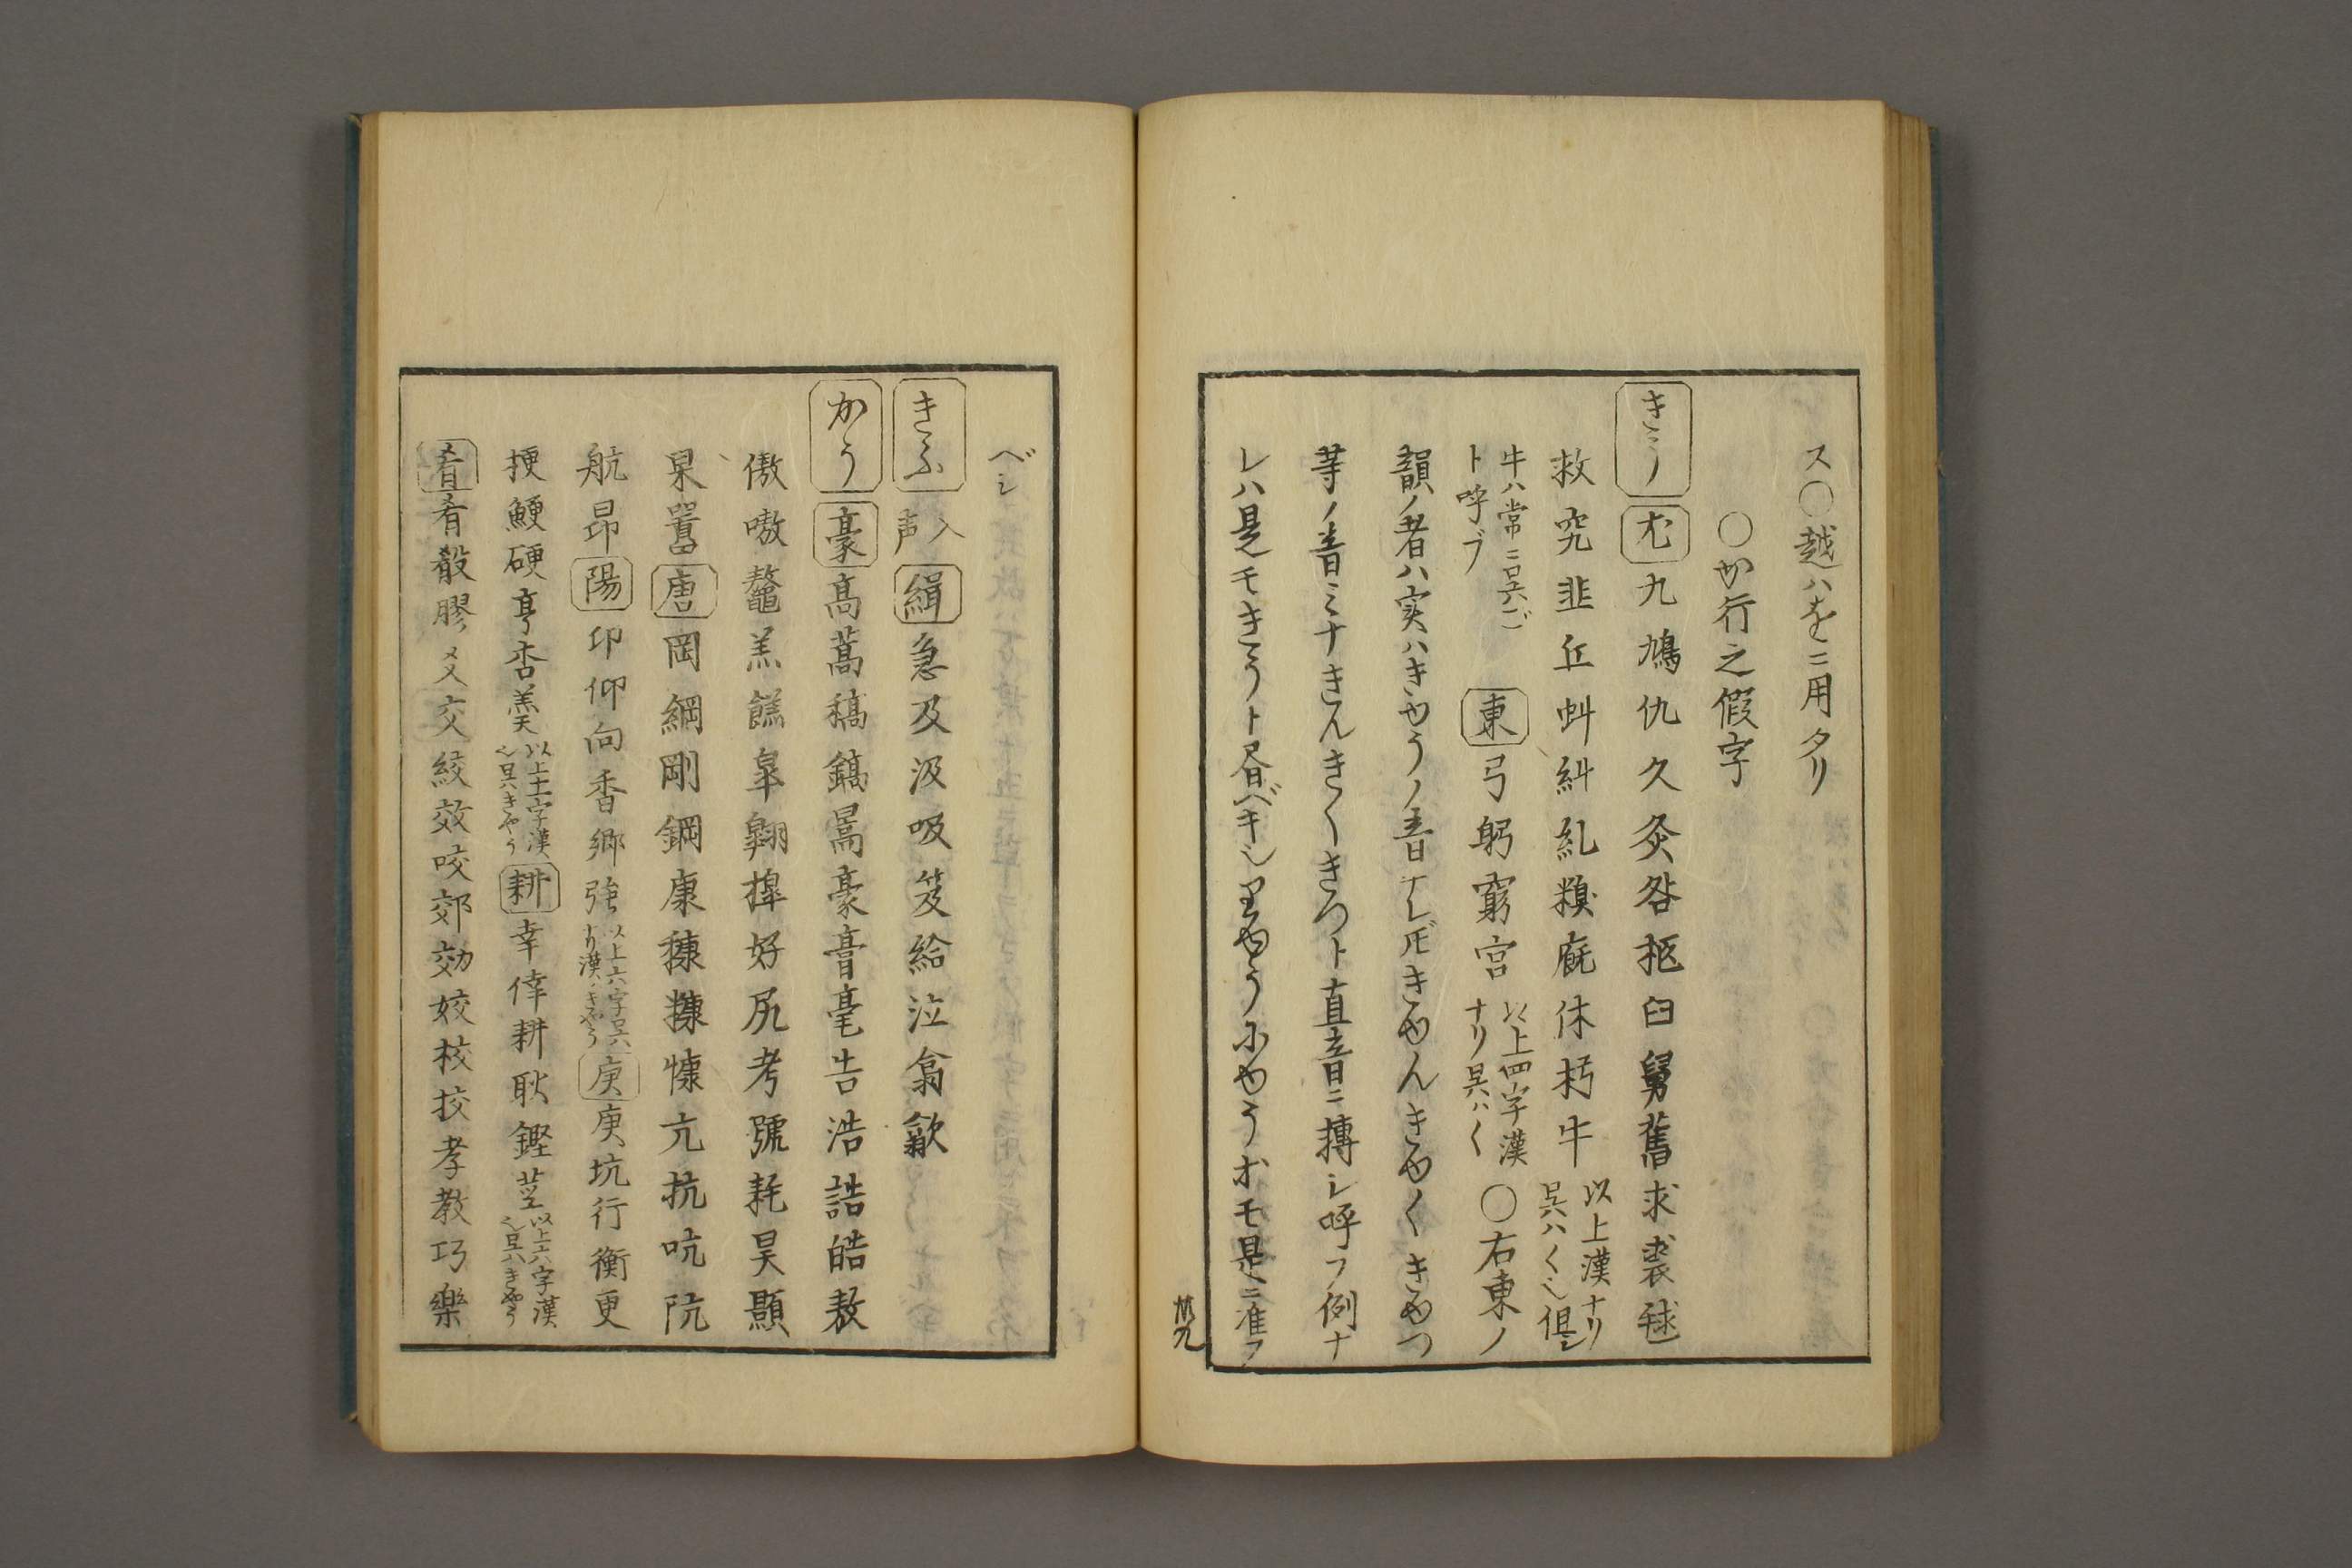 ス〇越ハをニ用タリ
〇か行之假字
きう 尤 九鳩仇久灸咎柩臼舅舊求裘毬
救究韭丘虯糾糺糗廐休朽牛 以上漢ナリ
呉ハく也但シ
牛ハ常ニ呉ご
ト呼ブ 東 弓躬窮宮 以上四字漢
ナリ呉ハく 〇右東ノ
韻ノ者ハ実ハきゆうノ音ナレドモきゆんきゆくきゆつ
等ノ音ミナきんきくきつト直音ニ摶シ呼フ例ナ
レハ是モきうト書ベキ也りゆうにゆうオモ是ニ准フ
廿九
ベシ
きふ 入声 緝 急及汲吸笈給泣翕歙
かう 豪 高蒿稿鎬暠豪膏毫告浩誥皓敖
傲嗷鼇羔餻皐翺槹好尻考號耗昊顥
杲囂 唐 岡綱剛鋼康穅糠慷亢抗吭阬
航昻 陽 卬仰向香郷強 以上六字呉ハ
ナリ漢ハきやう 庚 庚坑行衡更
挭鯁硬亨杏羹 以上十一字漢
也呉ハきやう 耕 幸倖耕耿鏗莖 以上六字漢
也呉ハきやう
肴 肴殽膠爻交絞效咬郊効姣校挍孝教巧樂